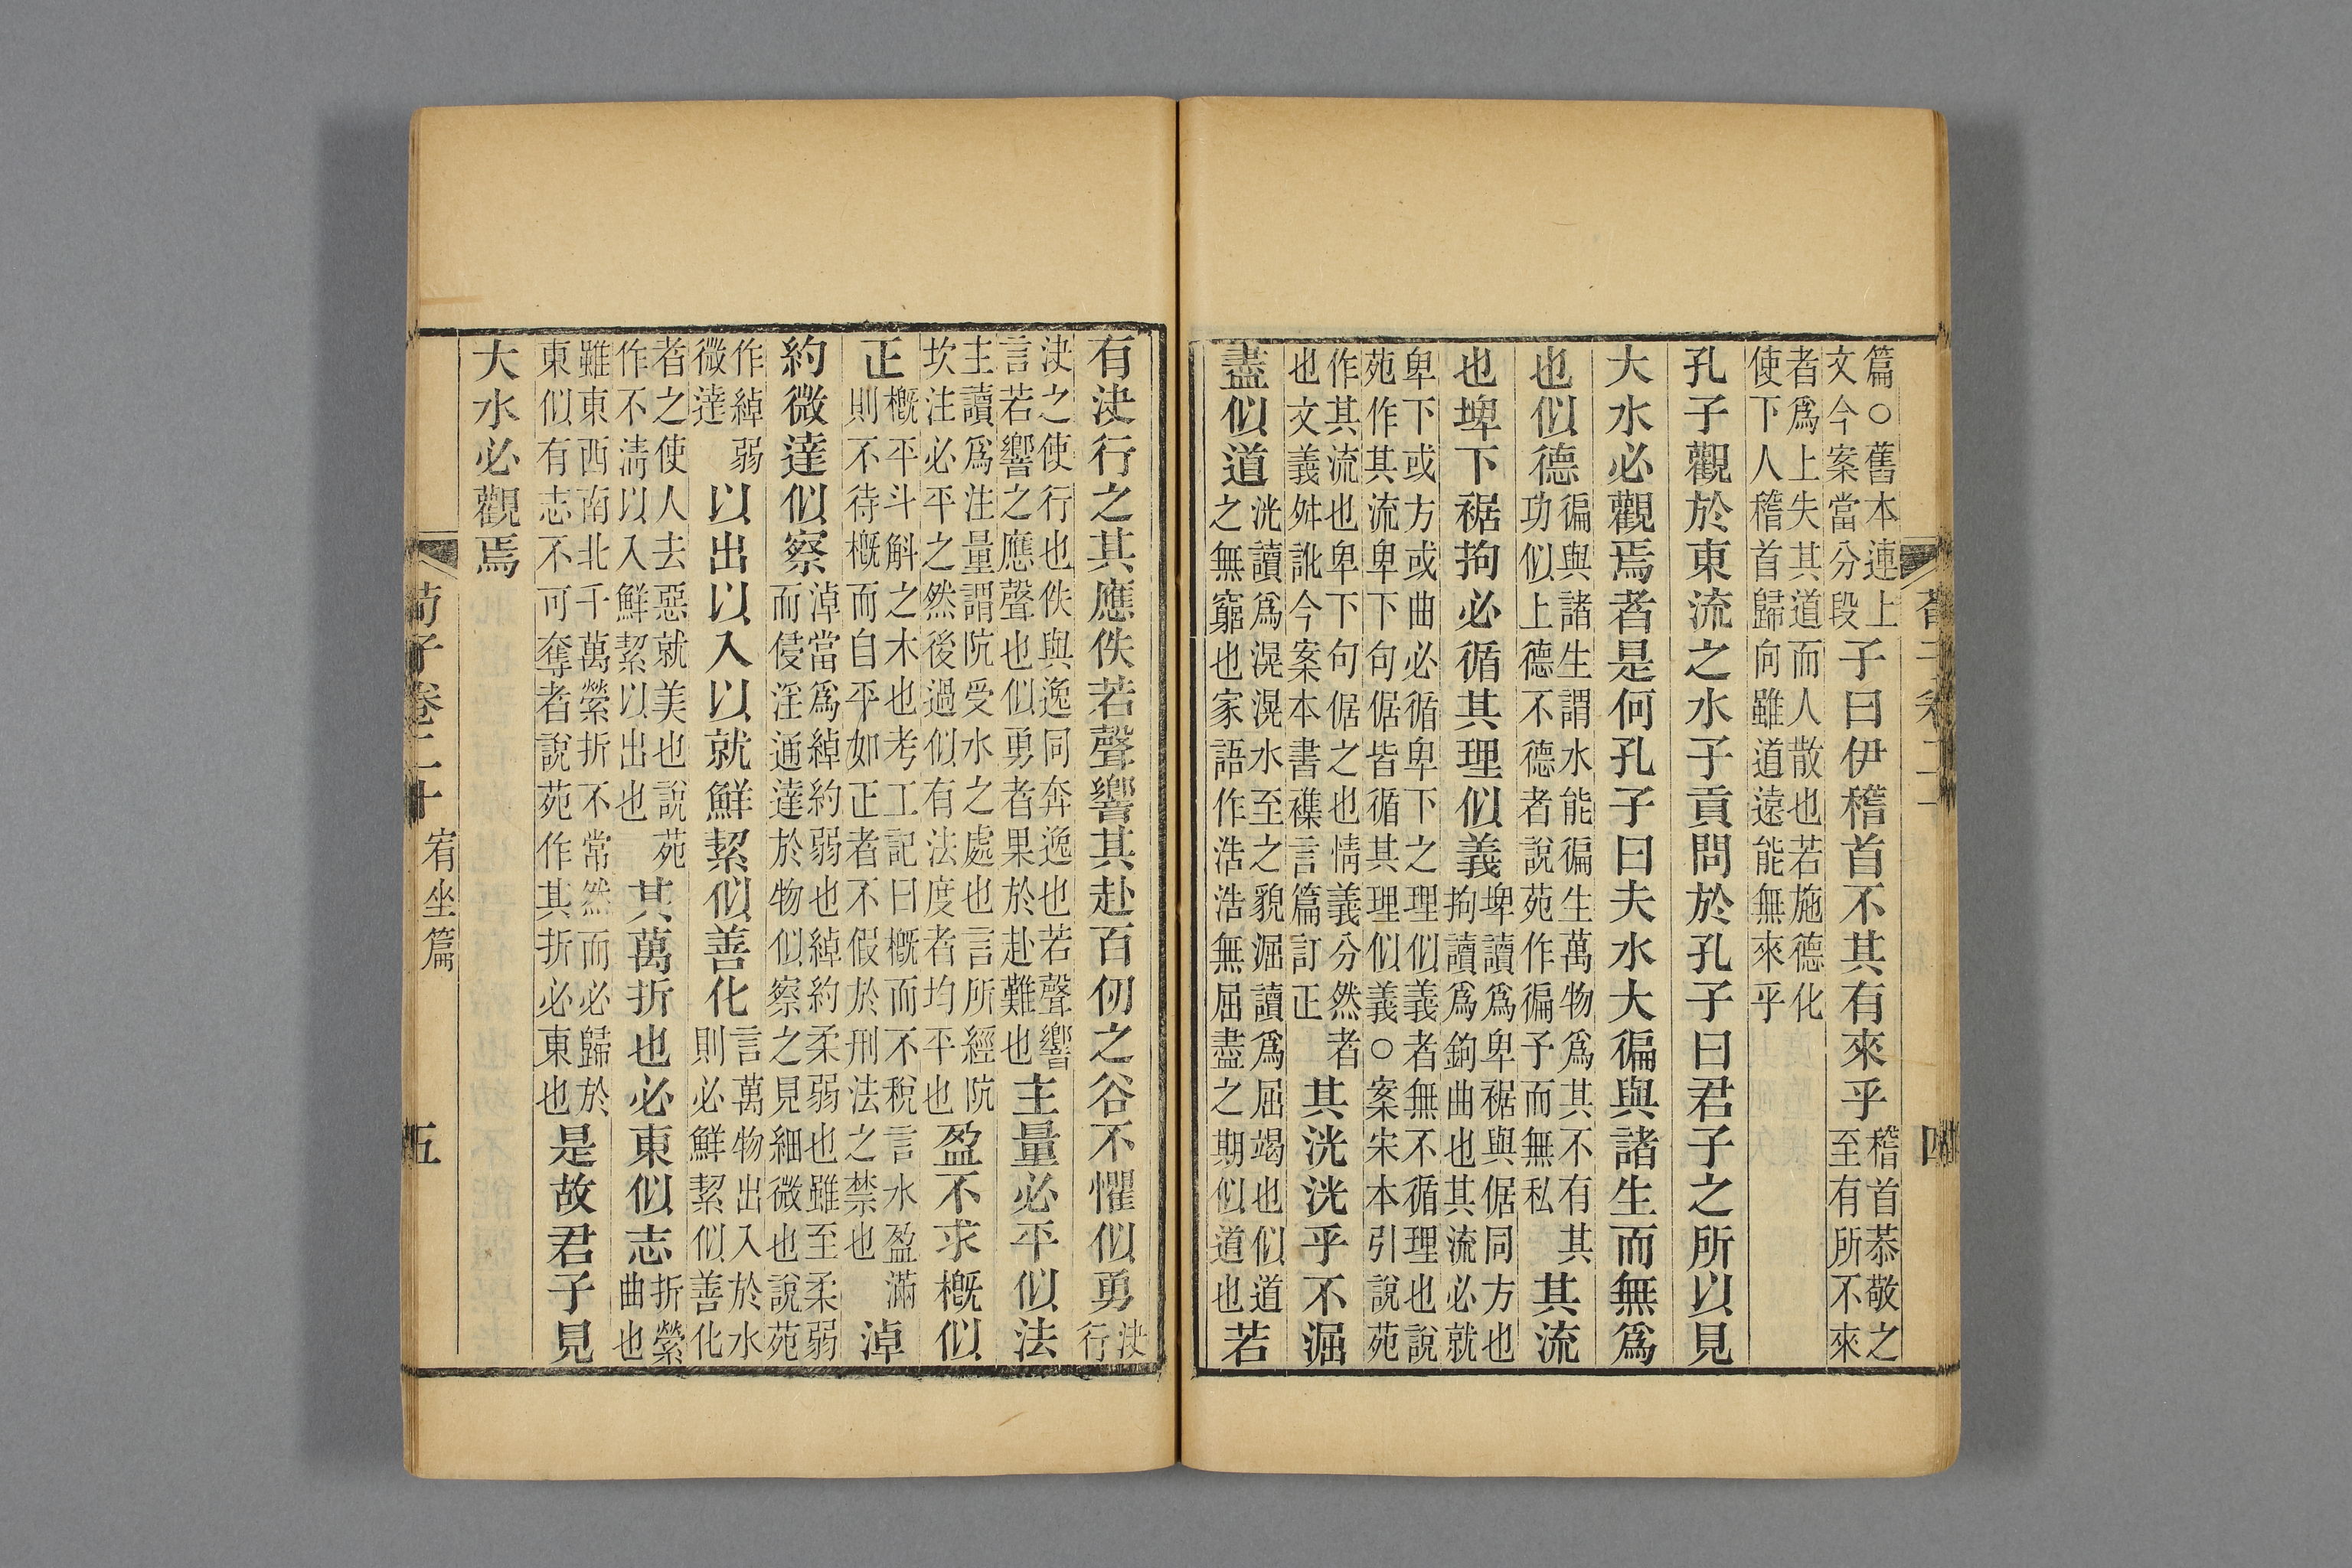 篇○舊本連上
文今案當分段
子曰伊稽首不其有來乎
稽首恭敬之
至有所不來
者爲上失其道而人散也若施德化
使下人稽首歸向雖道遠能無來乎
孔子觀於東流之水子貢問於孔子曰君子之所以見
大水必觀焉者是何孔子曰夫水大徧與諸生而無爲
也似德
徧與諸生謂水能徧生萬物爲其不有其
功似上德不德者說苑作徧予而無私
其流
也埤下裾拘必循其理似義
埤讀爲卑裾與倨同方也
拘讀爲鉤曲也其流必就
卑下或方或曲必循卑下之理似義者無不循理也說
苑作其流卑下句倨皆循其理似義○案宋本引說苑
作其流也卑下句倨之也情義分然者
也文義舛訛今案本書襍言篇訂正
其洸洸乎不淈
盡似道
洸讀爲滉滉水至之貌淈讀爲屈竭也似道
之無窮也家語作浩浩無屈盡之期似道也
若
四
有決行之其應佚若聲響其赴百仞之谷不懼似勇
決
行
決之使行也佚與逸同奔逸也若聲響
言若響之應聲也似勇者果於赴難也
主量必平似法
主讀爲注量謂阬受水之處也言所經阬
坎注必平之然後過似有法度者均平也
盈不求概似
正
概平斗斛之木也考工記曰概而不稅言水盈滿
則不待概而自平如正者不假於刑法之禁也
淖
約微達似察
淖當爲綽約弱也綽約柔弱也雖至柔弱
而侵淫通達於物似察之見細微也說苑
作綽弱
微達
以出以入以就鮮絜似善化
言萬物出入於水
則必鮮絜似善化
者之使人去惡就美也說苑
作不清以入鮮絜以出也
其萬折也必東似志
折縈
曲也
雖東西南北千萬縈折不常然而必歸於
東似有志不可奪者說苑作其折必東也
是故君子見
大水必觀焉
荀子卷二十
宥坐篇
五